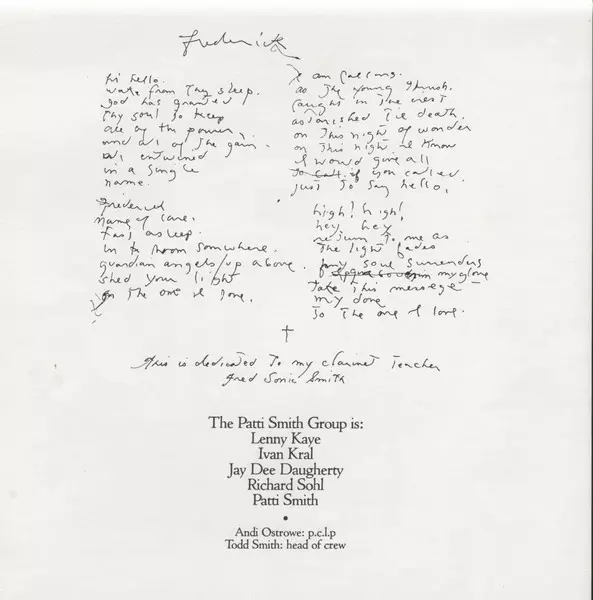 Frederick
hi hello.
wake from thy sleep.
god has granted
thy soul to keep
all of the power,
and all of the gain.
all entwined
in a single
name.
Frederick
name of care.
fast asleep.
in a room somewhere.
guardian angels/up above.
shed your light
on the one I love.
I am calling.
as the young thrush.
caught in the nest
astonished til death.
on this night of wonder
on this night I know
I would give all
to call. if you called.
just to say hello,
high! high!
hey, hey
return to me as
the light fades
my soul surrenders
my glove
Take this message
my dove
to the one I love.
†
this is dedicated to my clarinet teacher
fred sonic smith
The Patti Smith Group is:
Lenny Kaye
Ivan Kral
Jay Dee Daugherty
Richard Sohl
Patti Smith
•
Andi Ostrowe: p.c.l.p
Todd Smith: head of crew